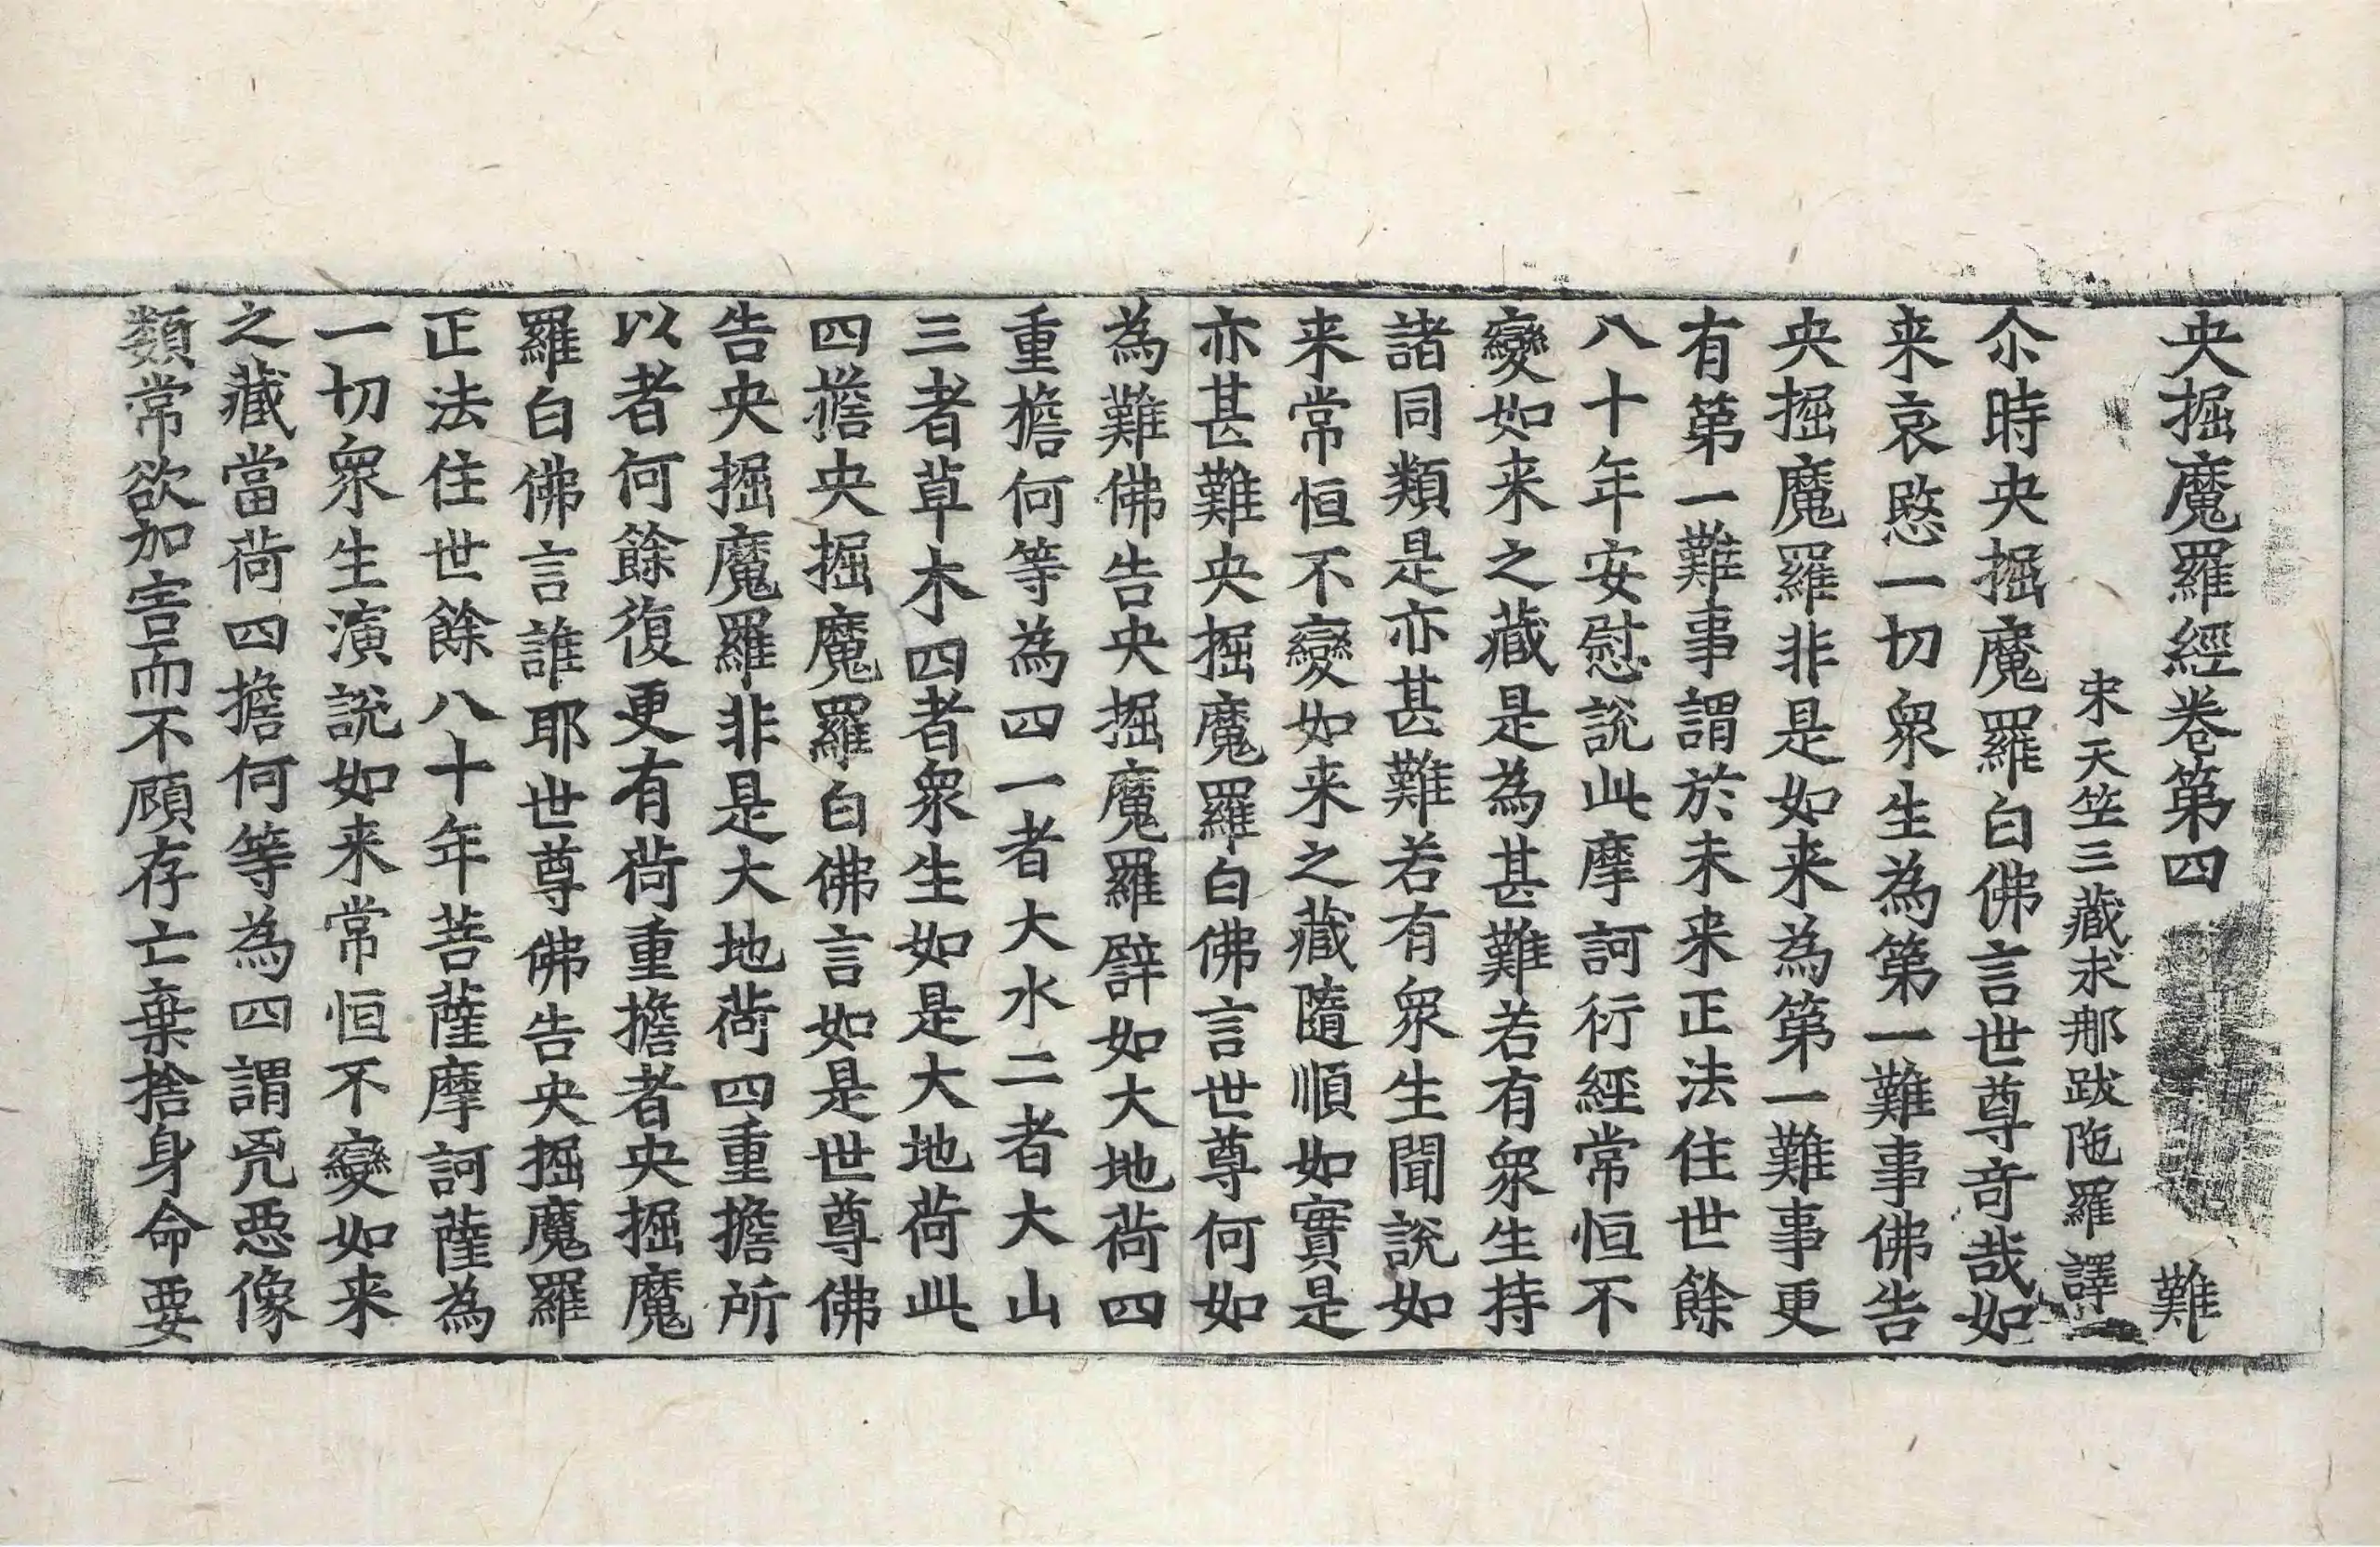 央掘魔羅經卷第四 難
宋天竺三藏求那跋陁羅譯
尒時央掘魔羅白佛言世尊奇哉如
来哀愍一切衆生為第一難事佛告
央掘魔羅非是如来為第一難事更
有第一難事謂於未来正法住世餘
八十年安慰說此摩訶衍經常恒不
變如来之藏是為甚難若有衆生持
諸同類是亦甚難若有衆生聞說如
来常恒不變如来之藏隨順如實是
亦甚難央掘魔羅白佛言世尊何如
為難佛告央掘魔羅辟如大地荷四
重擔何等為四一者大水二者大山
三者草木四者衆生如是大地荷此
四擔央掘魔羅白佛言如是世尊佛
告央掘魔羅非是大地荷四重擔所
以者何餘復更有荷重擔者央掘魔
羅白佛言誰耶世尊佛告央掘魔羅
正法住世餘八十年菩薩摩訶薩為
一切衆生演說如来常恒不變如来
之藏當荷四擔何等為四謂兇惡像
類常欲加害而不顧存亡棄捨身命要